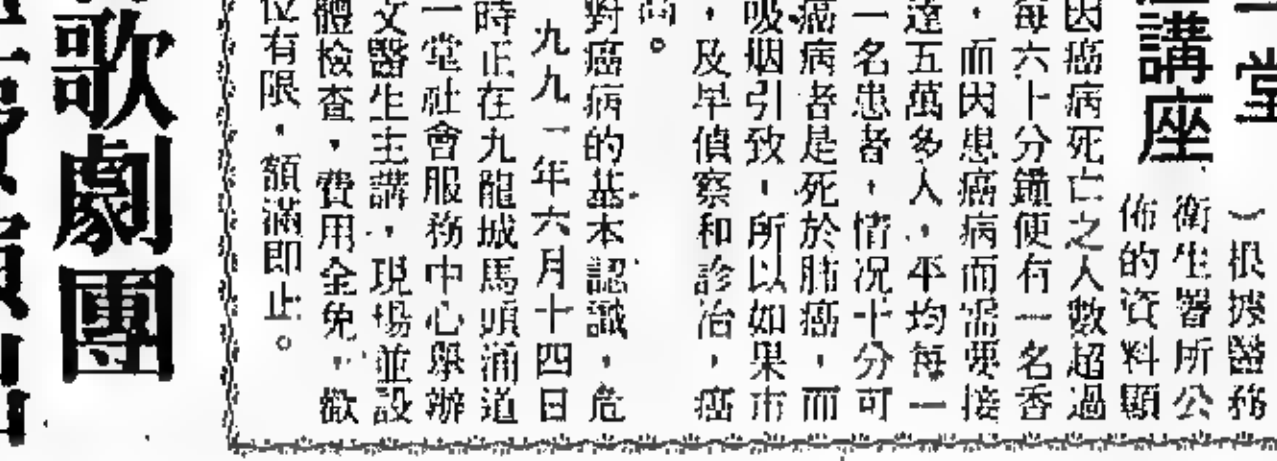 一堂
講座
︶根據醫務
衛生署所公
佈的資料顯
因癌病死亡之人數超過
每六十分鐘便有一名香
，而因患癌病而需要接
達五萬多人，平均每一
一名患者，情况十分可
癌病者是死於肺癌，而
吸烟引致，所以如果市
，及早偵察和診治，癌
高。
對癌病的基本認識，危
九九一年六月十四日
時正在九龍城馬頭涌道
一堂社會服務中心舉辦
文醫生主講，現場並設
體檢查，費用全免，歡
位有限，額滿即止。
歌劇團